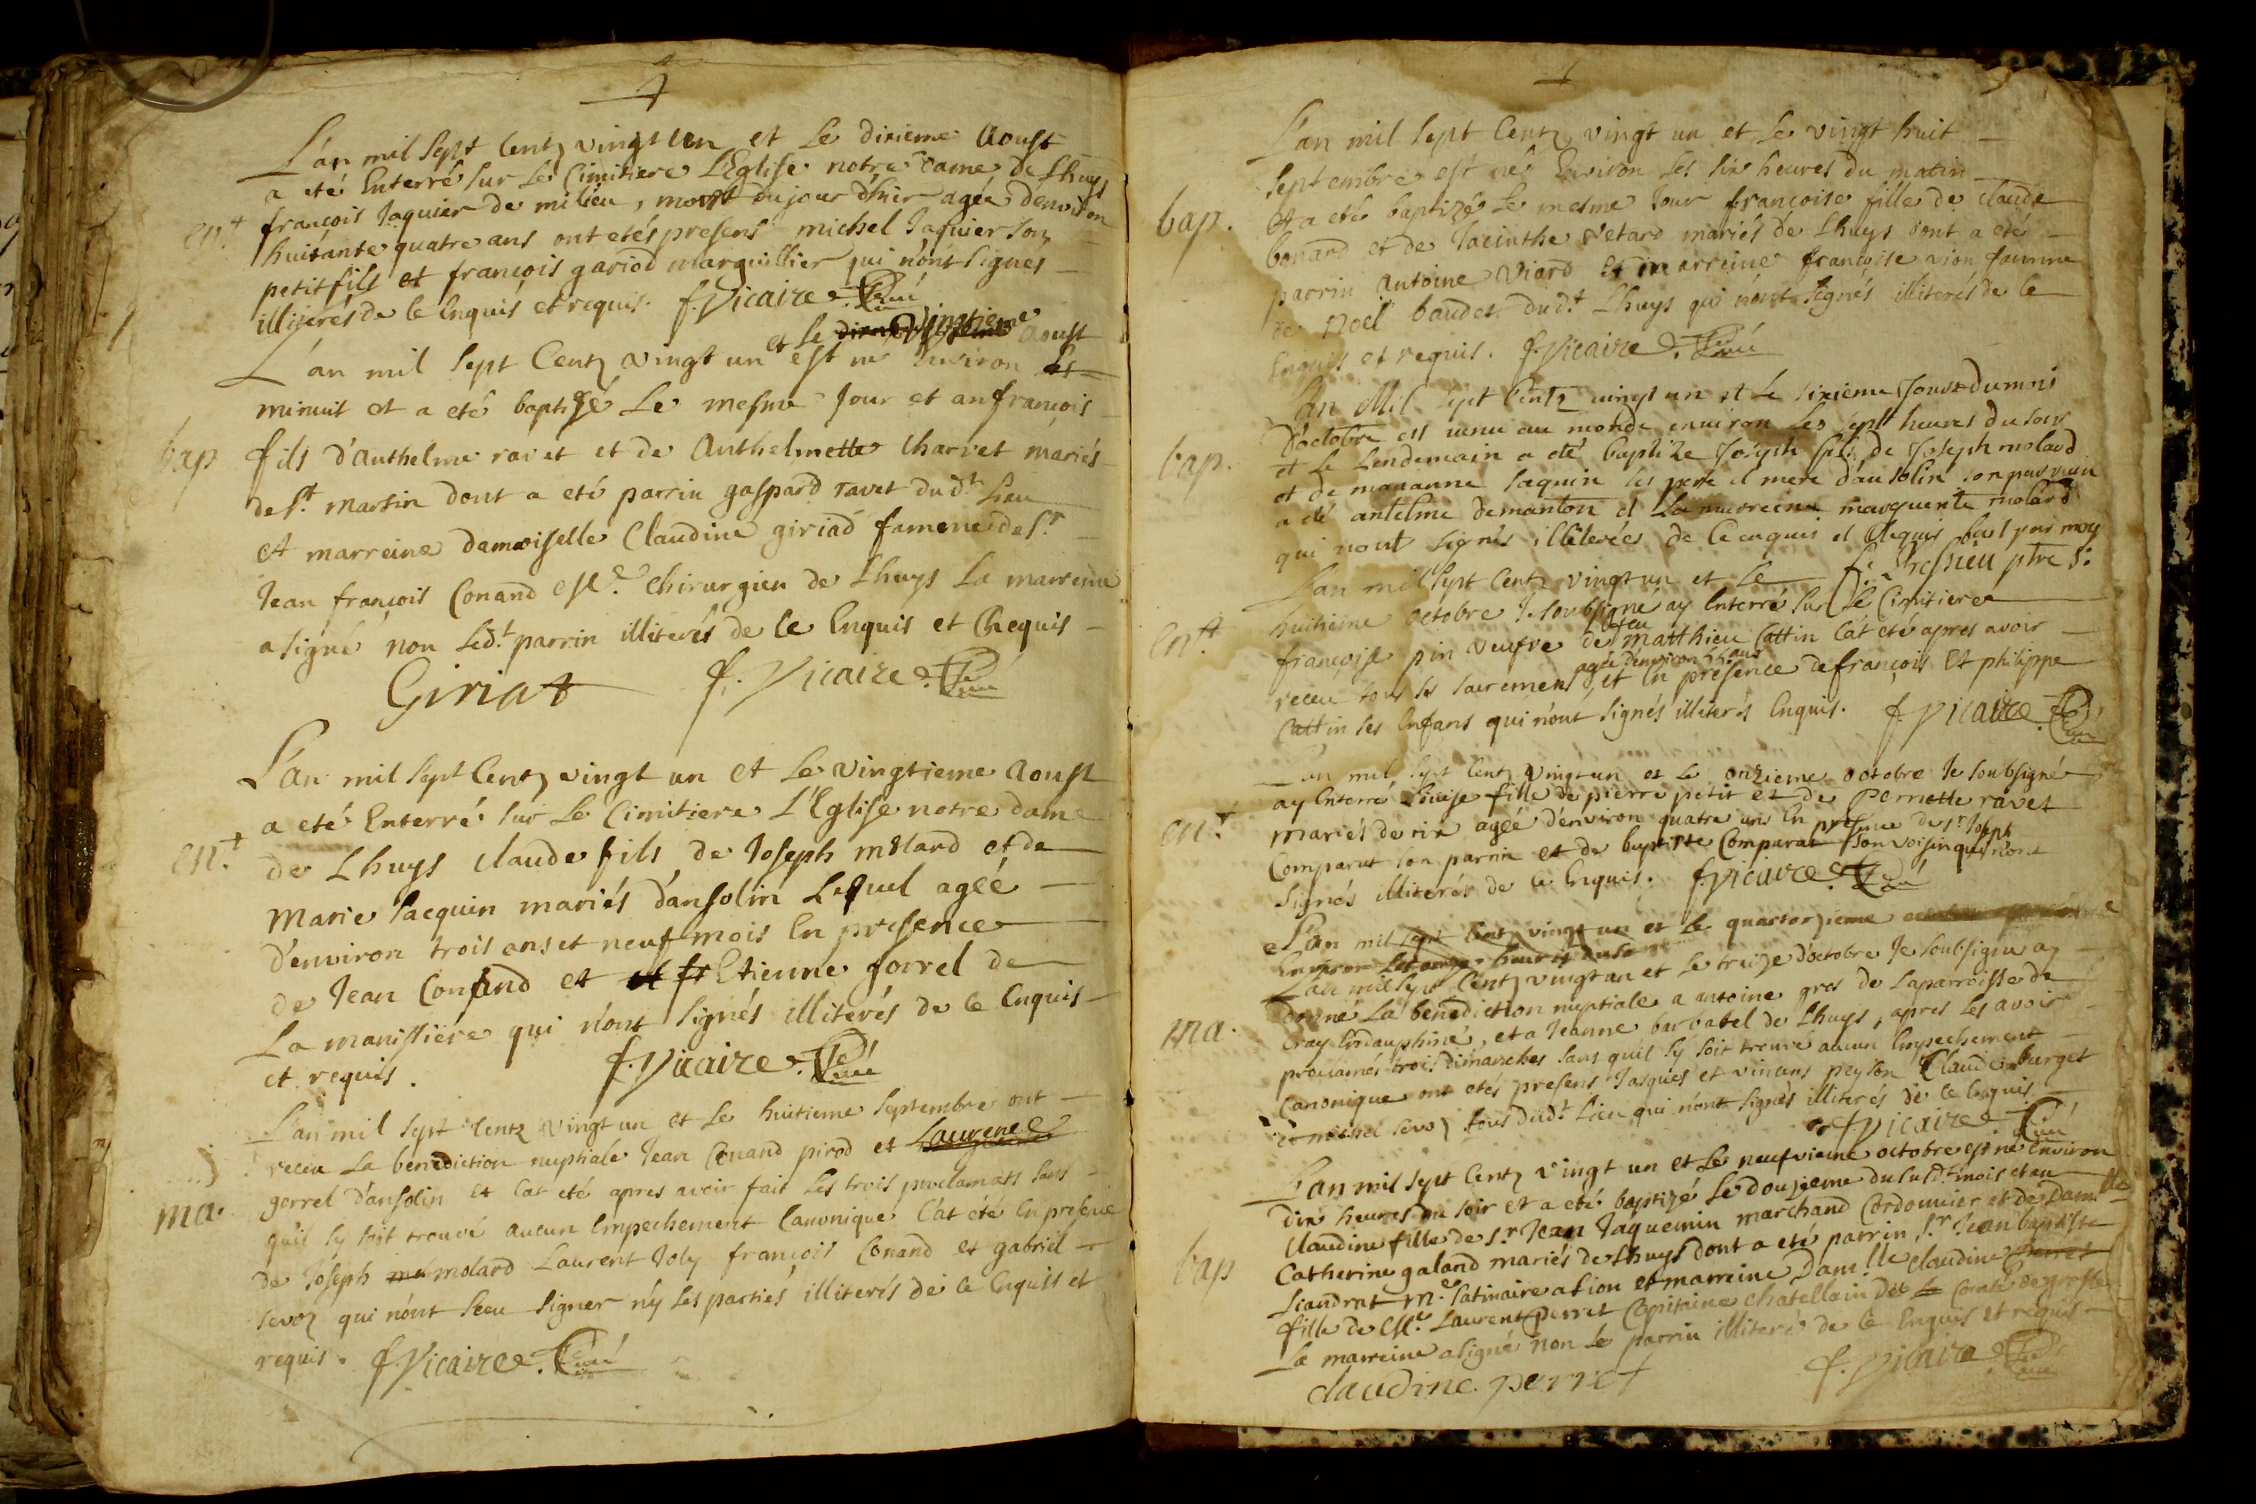 L'an mil sept Centz vingt un et le dixieme Aoust
a eté Enterré sur le Cimitiere L'Eglise notre dame de Lhuys
ent françois Jaquier de milieu, mort du jour d'hier agée d'environ
huitante quatre ans ont etés presens michel Jaquier son
petit fils et françois gariod marguillier qui n'ont signes
illiterés de ce Enquis et requis. f. Vicaire Curé
et le vingtieme aoust
L'an mil sept Centz vingt un est né Environ les
minuit et a eté baptizé Le mesme Jour et an françois
bap fils d'Anthelme ravet et de Anthelmette Charvet mariés
de st martin dont a eté parrin gaspard ravet dudt Lieu
et marreine damoiselle Claudine giriad famme de sr
Jean françois Conand Me Chirurgien de Lhuys La marreine
a signé non Ledt parrin illiterés de ce Enquis et Requis
Giriat f. Vicaire Curé
L'an mil sept Centz vingt un et le vingtieme Aoust
a eté Enterré sur Le Cimitiere L'Eglise notre dame
ent de Lhuys claude fils de Joseph molard et de
Marie Jacquin mariés d'ansolin Lequel agéé
d'environ trois ans et neuf mois En presence
de Jean Conand et Etienne gorrel de
La manissiere qui n'ont signés illiterés de ce Enquis
et requis. f. Vicaire Curé
L'an mil sept Centz vingt un et le huitieme septembre ont
receu La benediction nuptiale Jean Conand pirod et Laurence
gorrel d'ansolin et C'at eté apres avoir fait Les trois proclamats sans
ma. qu'il sy soit trouvé aucun Empechement Canonique C'at été En presence
de Joseph molard Laurent Joly françois Conand et gabriel
sevoz qui n'ont sceu signer n'y Les parties illiterés de ce Enquis et
requis. f. Vicaire Curé
L'an mil sept Centz vingt un et le vingt huit
septembre est né Environ les six heures du matin
bap. et a eté baptizé Le mesme Jour françoise fille de claude
bonard et de Jacinthe vetard mariés de Lhuys dont a eté
parrin Antoine Viard et marreine françoise vion famme
de Noël baudet dudt Lhuys qui n'ont signés illiterés de ce
Enquis et requis. f. Vicaire Curé
L'an Mil sept Centz vingt un et le sixieme Jour du mois
D'octobre est venu au monde environ les sept heures du soir
bap. et le Lendemain a eté baptize Joseph fils de Joseph molard
et de marianne Jaquin ses pere et mere d'ansolin son parrain
a eté antelme demanton et La marreine marguerite molard
qui n'ont signés illiterées de ce enquis et Requis fait par moy
L'an mil sept Centz vingt un et le ptre
huitieme octobre Je soubsigné ay Enterré sur le Cimitiere
ent françoise pin veufve de feu matthieu Cattin C'at eté apres avoir
receu tous les sacremens agée d'environ ans et En presence de françois et philippe
Cattin ses Enfans qui n'ont signés illiterés Enquis. f. Vicaire Curé
L'an mil sept Centz vingt un et le onzieme octobre Je soubsigné
ay Enterré Louise fille de pierre petit et de pernette ravet
ent mariés de rix agéé d'environ quatre ans En presence de sr Joseph
Comparat son parrin et de baptiste Comparat son voisin qui n'ont
signés illiterés de ce Enquis. f. Vicaire Curé
L'an mil sept Centz vingt un et le quatorzieme
Environ Les heures
L'an mil sept Centz vingt un et le treize d'octobre Je soubsigné ay
donné La benediction nuptiale a antoine gros de La parroisse de
ma. Cray En dauphiné, et a Jeanne barbabel de Lhuys, apres Les avoir
proclamés trois dimanches sans qu'il sy soit trouvé aucun Empechement
Canonique ont etés presens Jasques et vincens peyson Claude burget
et michel sevoz tous dudt Lieu qui n'ont signés illiterés de ce Enquis
f. Vicaire Curé
L'an mil sept Centz vingt un et le neufvieme octobre est né Environ
dix heures du soir et a eté baptizé Le douzieme du susdt mois et an
Claudine fille de sr Jean Jaquemin marchand Cordonnier et de Damlle
bap Catherine galand mariés de Lhuys dont a eté parrin sr Jean baptiste
Liandrat me satinaire a Lion et marreine Damlle Claudine perret
fille de Me Laurent perret Capitaine chatellain du Comté de groslée
La marreine a signé non Le parrin illiteré de ce Enquis et requis
claudine perret f. Vicaire Curé